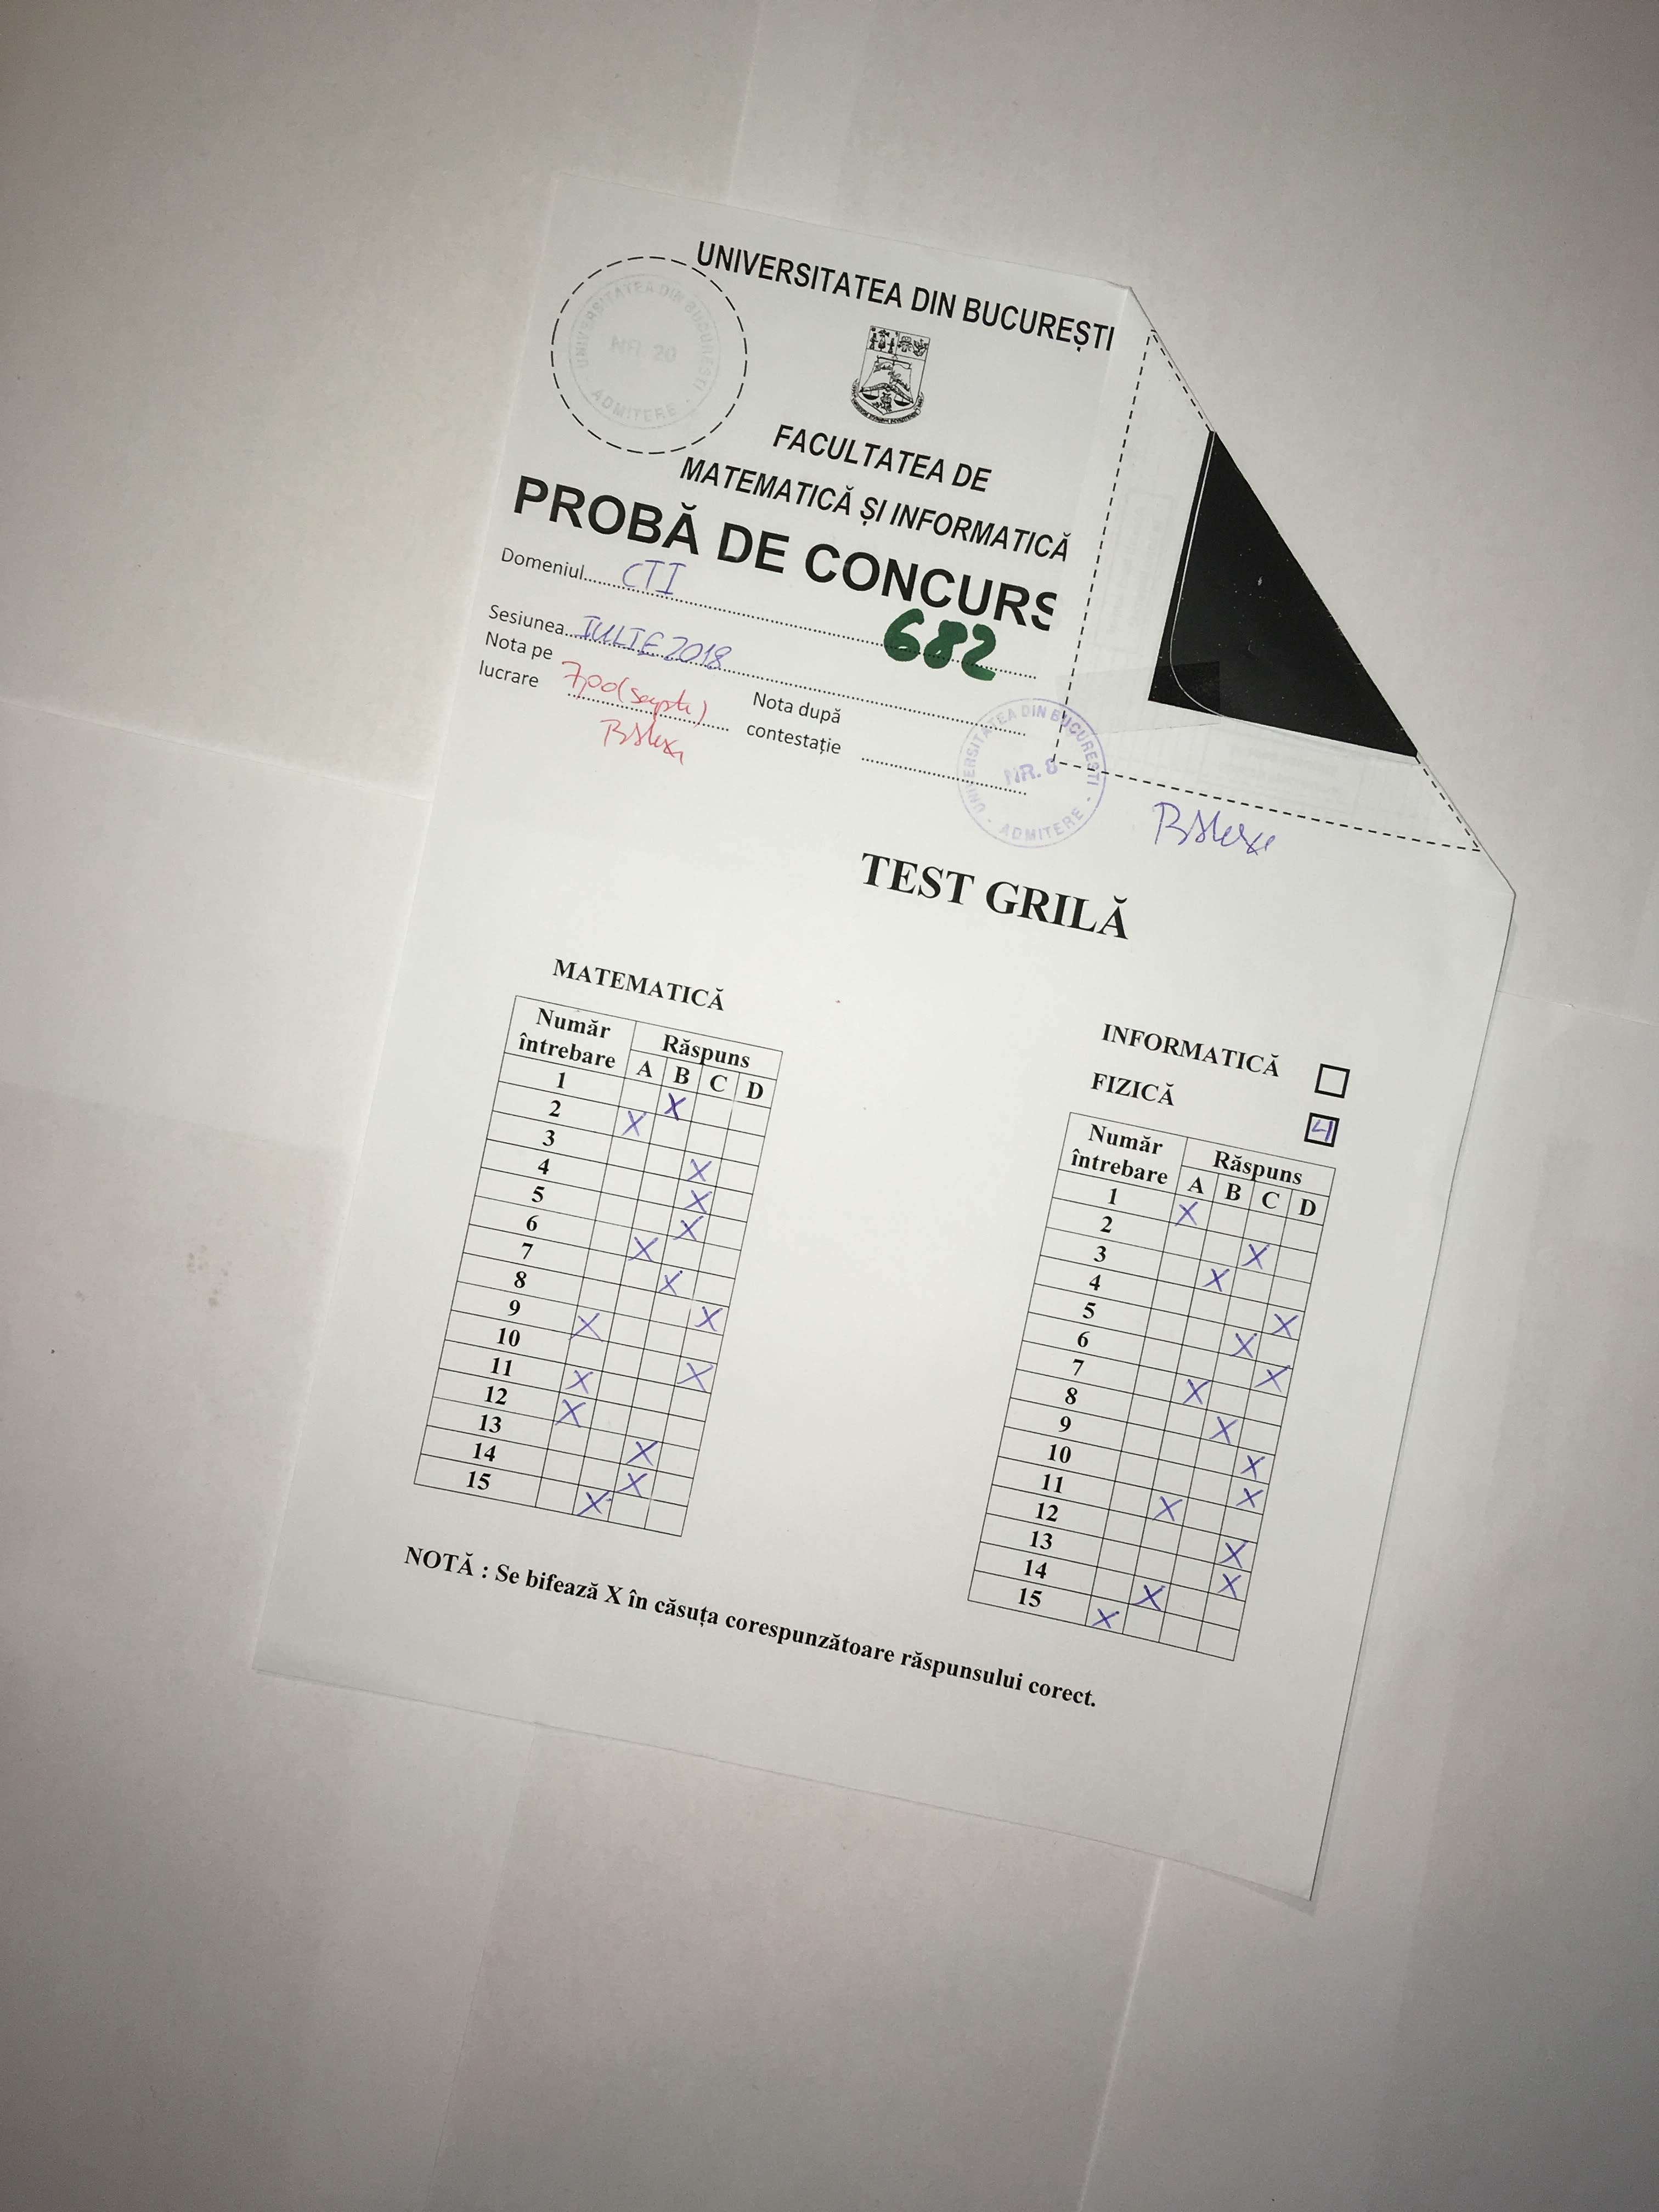 UNIVERSITATEA DIN BUCUREȘTI
UNIVERSITATEA DIN BUCUREȘTI
NR. 20
ADMITERE
FACULTATEA DE
MATEMATICĂ ȘI INFORMATICĂ
PROBĂ DE CONCURS
Domeniul CTI
682
Sesiunea IULIE 2018
Nota pe
lucrare 7,00 (șapte)
Nota după
contestație
UNIVERSITATEA DIN BUCUREȘTI
NR. 8
ADMITERE
TEST GRILĂ
MATEMATICĂ
Număr
întrebare
Răspuns
A B C D
1 X
2 X
3 X
4 X
5 X
6 X
7 X
8 X
9 X
10 X
11 X
12 X
13 X
14 X
15 X
INFORMATICĂ
FIZICĂ
Număr
întrebare
Răspuns
A B C D
1 X
2 X
3 X
4 X
5 X
6 X
7 X
8 X
9 X
10 X
11 X
12 X
13 X
14 X
15 X
NOTĂ : Se bifează X în căsuța corespunzătoare răspunsului corect.